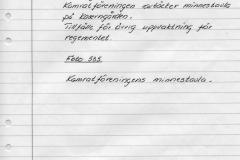 Kamratföreningen avtäcker minnestavla
på kaserngården.
Tillfälle för övrig uppvaktning för
regementet.
Foto 555.
Kamratföreningens minnestavla.